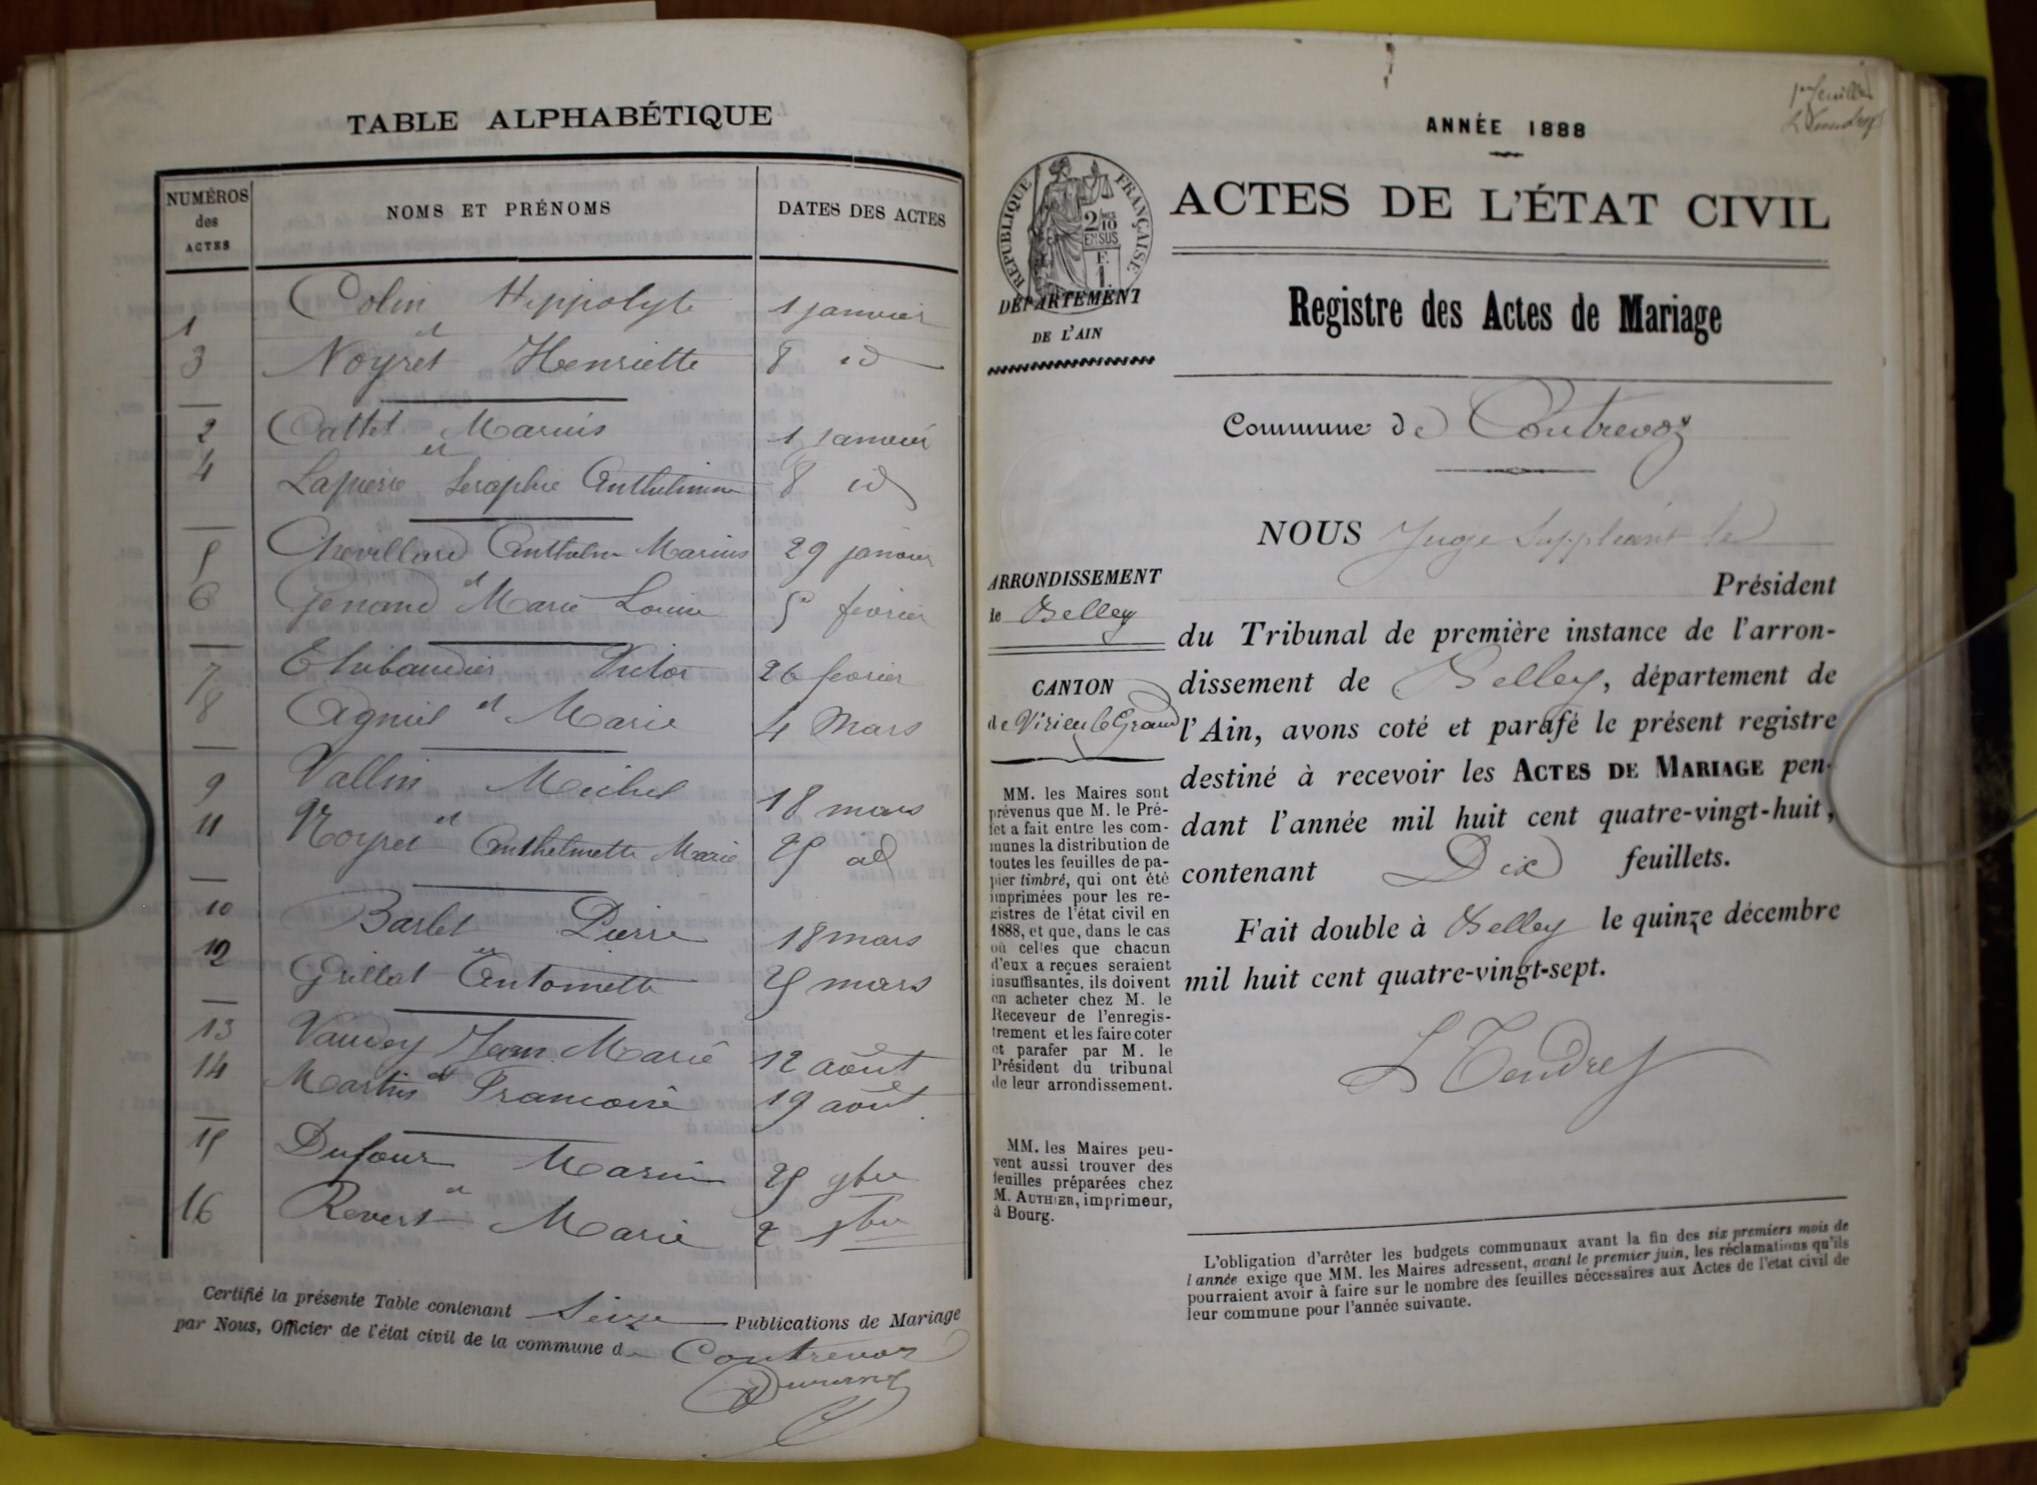 TABLE ALPHABÉTIQUE
NUMÉROS
des
ACTES
NOMS ET PRÉNOMS
DATES DES ACTES
1 Colin Hippolyte 1 janvier
et
3 Noyret Henriette 8 id
2 Cattet Marius 1 janvier
et
4 Lapierre Séraphie Anthelmine 8 id
5 Chevillard Anthelme Marius 29 janvier
et
6 Genand Marie Louise 5 février
7 Thibaudier Victor 26 février
et
8 Agniel Marie 4 Mars
9 Vallin Michel 18 mars
et
11 Noyret Anthelmette Marie 25 id
10 Barlet Pierre 18 mars
et
12 Grillat Antoinette 25 mars
13 Vaudey Jean Marie 12 août
et
14 Martin Françoise 19 août
15 Dufour Marin 25 9bre
et
16 Revert Marie 2 Xbre
Certifié la présente Table contenant Seize Publications de Mariage
par Nous, Officier de l'état civil de la commune de Contrevoz
ANNÉE 1888
1er feuillet
L Tendret
RÉPUBLIQUE FRANÇAISE
2/10
EN SUS
F.
1
ACTES DE L'ÉTAT CIVIL
DÉPARTEMENT
DE L'AIN
Registre des Actes de Mariage
Commune de Contrevoz
NOUS Juge Suppléant le
Président
ARRONDISSEMENT
de Belley
CANTON
de Virieu le Grand
du Tribunal de première instance de l'arron-
dissement de Belley, département de
l'Ain, avons coté et parafé le présent registre
destiné à recevoir les ACTES DE MARIAGE pen-
dant l'année mil huit cent quatre-vingt-huit,
contenant Dix feuillets.
Fait double à Belley le quinze décembre
mil huit cent quatre-vingt-sept.
L Tendret
MM. les Maires sont
prévenus que M. le Pré-
fet a fait entre les com-
munes la distribution de
toutes les feuilles de pa-
pier timbré, qui ont été
imprimées pour les re-
gistres de l'état civil en
1888, et que, dans le cas
où celles que chacun
d'eux a reçues seraient
insuffisantes, ils doivent
en acheter chez M. le
Receveur de l'enregis-
trement et les faire coter
et parafer par M. le
Président du tribunal
de leur arrondissement.
MM. les Maires peu-
vent aussi trouver des
feuilles préparées chez
M. AUTHIER, imprimeur,
à Bourg.
L'obligation d'arrêter les budgets communaux avant la fin des six premiers mois de
l'année exige que MM. les Maires adressent, avant le premier juin, les réclamations qu'ils
pourraient avoir à faire sur le nombre des feuilles nécessaires aux Actes de l'état civil de
leur commune pour l'année suivante.